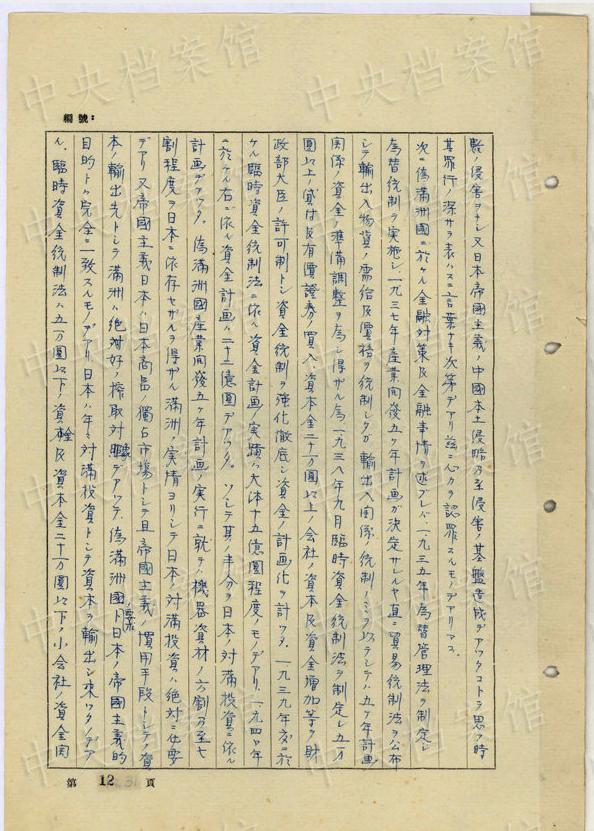 編號:
毆ノ侵害ヲナシ又日本帝國主義ノ中國本土侵略乃至侵害ノ基盤造成デアツタコトヲ思フ時
其罪行ノ深サヲ表ハスニ言葉ナキ次第デアリ茲ニ心カラ認罪スルモノデアリマス.
次ニ偽滿洲國ニ於ケル金融対策及金融事情ヲ述ブレバ.一九三五年為替管理法ヲ制定シ
為替統制ヲ実施シ.一九三七年産業開發五ヶ年計画ガ決定サレルヤ直ニ貿易統制法ヲ公布
シテ輸出入物貨ノ需給及價格ヲ統制シタガ輸出入関係ノ統制ノミヲ以テシテハ五ヶ年計画
関係ノ資金ノ準備調整ヲ為シ得ザル為.一九三八年九月臨時資金統制法ヲ制定シ五万
圓以上ノ貸付及有價證券ノ買入.資本金二十万圓以上ノ会社ノ資本及資金增加等ヲ財
政部大臣ノ許可制トシ資金統制ヲ強化徹底シ資金ノ計画化ヲ計ツタ.一九三九年次ニ於
ケル臨時資金統制法ニ依ル資金計画ノ実蹟ハ大体十五億圓程度ノモノデアリ.一九四〇年
ニ於ケル右ニ依ル資金計画ハ二十三億圓デアツタ.ソシテ其ノ半分ヲ日本ノ対滿投資ニ依ル
計画デアツタ.偽滿洲國産業開發五ヶ年計画ノ実行ニ就テノ機器資材ノ六割乃至七
割程度ヲ日本ニ依存セザルヲ得ザル滿洲ノ実情ヨリシテ日本ノ対滿投資ハ絶対ニ必要
デアリ又帝國主義日本ハ日本商品ノ獨占市場トシテ且帝國主義ノ慣用手段トシテノ資
本ノ輸出先トシテ滿洲ハ絶対好ノ搾取対象デアツテ.偽滿洲國ノ要求ト日本ノ帝國主義的
目的トハ完全ニ一致スルモノデアリ日本ハ年々対滿投資トシテ資本ヲ輸出シ來ツタノデア
ル.臨時資金統制法ハ五万圓以下ノ資金及資本金二十万圓以下ノ小会社ノ資金関
第 12 31 頁
中央档案馆